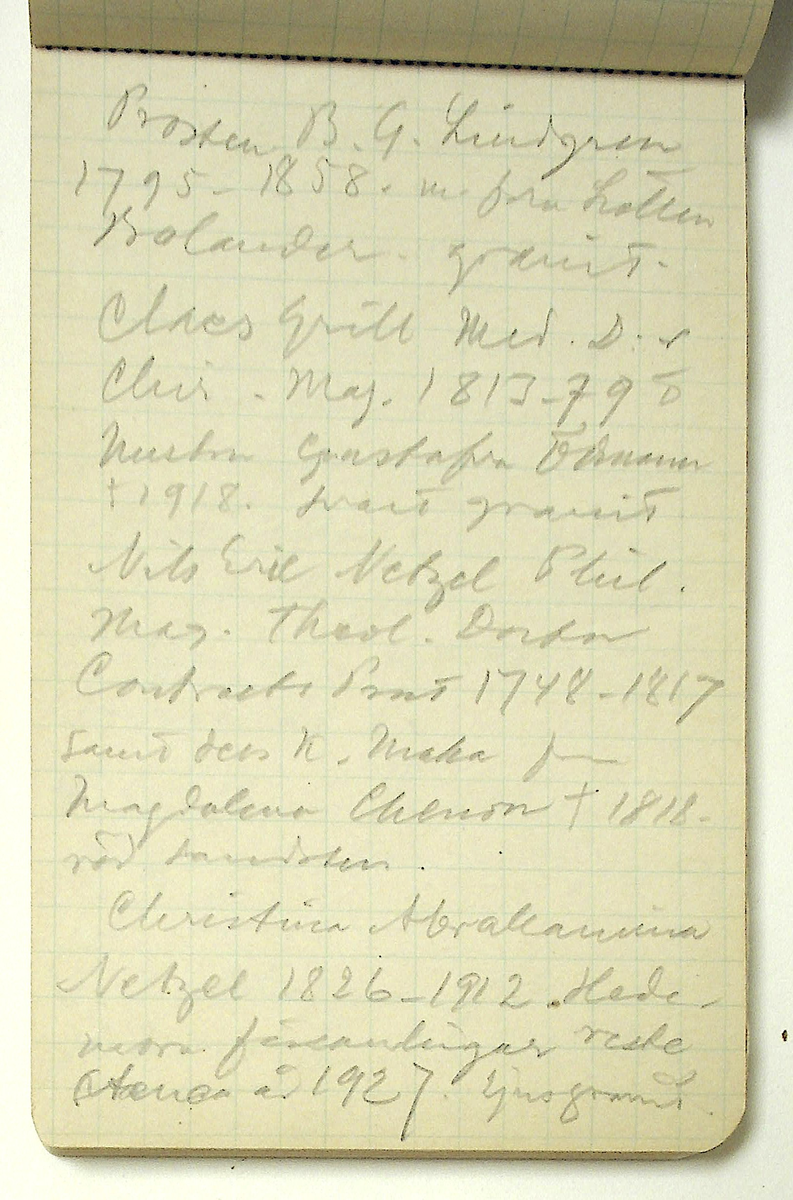 Prosten B. G. Lindgren
1795-1858. m. fru Lotten
Bolander. granit.
Claes Grill Med. D. &
Chir. Mag. 1813-79 o
hustrun Gustafva Ödmann
† 1918. svart granit
Nils Eric Netzel Phil.
Mag. Theol. Doctor
Contracts Prost 1748-1817
samt dess K. Maka fru
Magdalena Chenon † 1818.
röd sandsten.
Christina Abrahamina
Netzel 1826-1912. Hede-
mora församlingar reste
stenen år 1927. Ljus granit